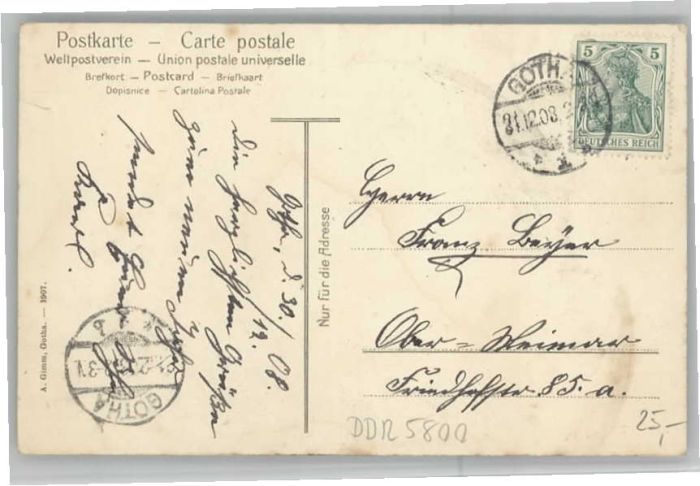 Postkarte – Carte postale
Weltpostverein – Union postale universelle
Brefkort – Postcard – Briefkaart
Dopisnice – Cartolina Postale
5 5
DEUTSCHES REICH
GOTHA
31.12.08.
Gotha, d. 30./12. 08.
Die herzlichsten Grüßen
zum neuen Jahr
sendet
Karl.
GOTHA
A. Gimm, Gotha. – 1907.
Nur für die Adresse
Herrn
Franz Beyer
Ober-Weimar
Friedhofstr 85. a.
DDR 5800
25,-